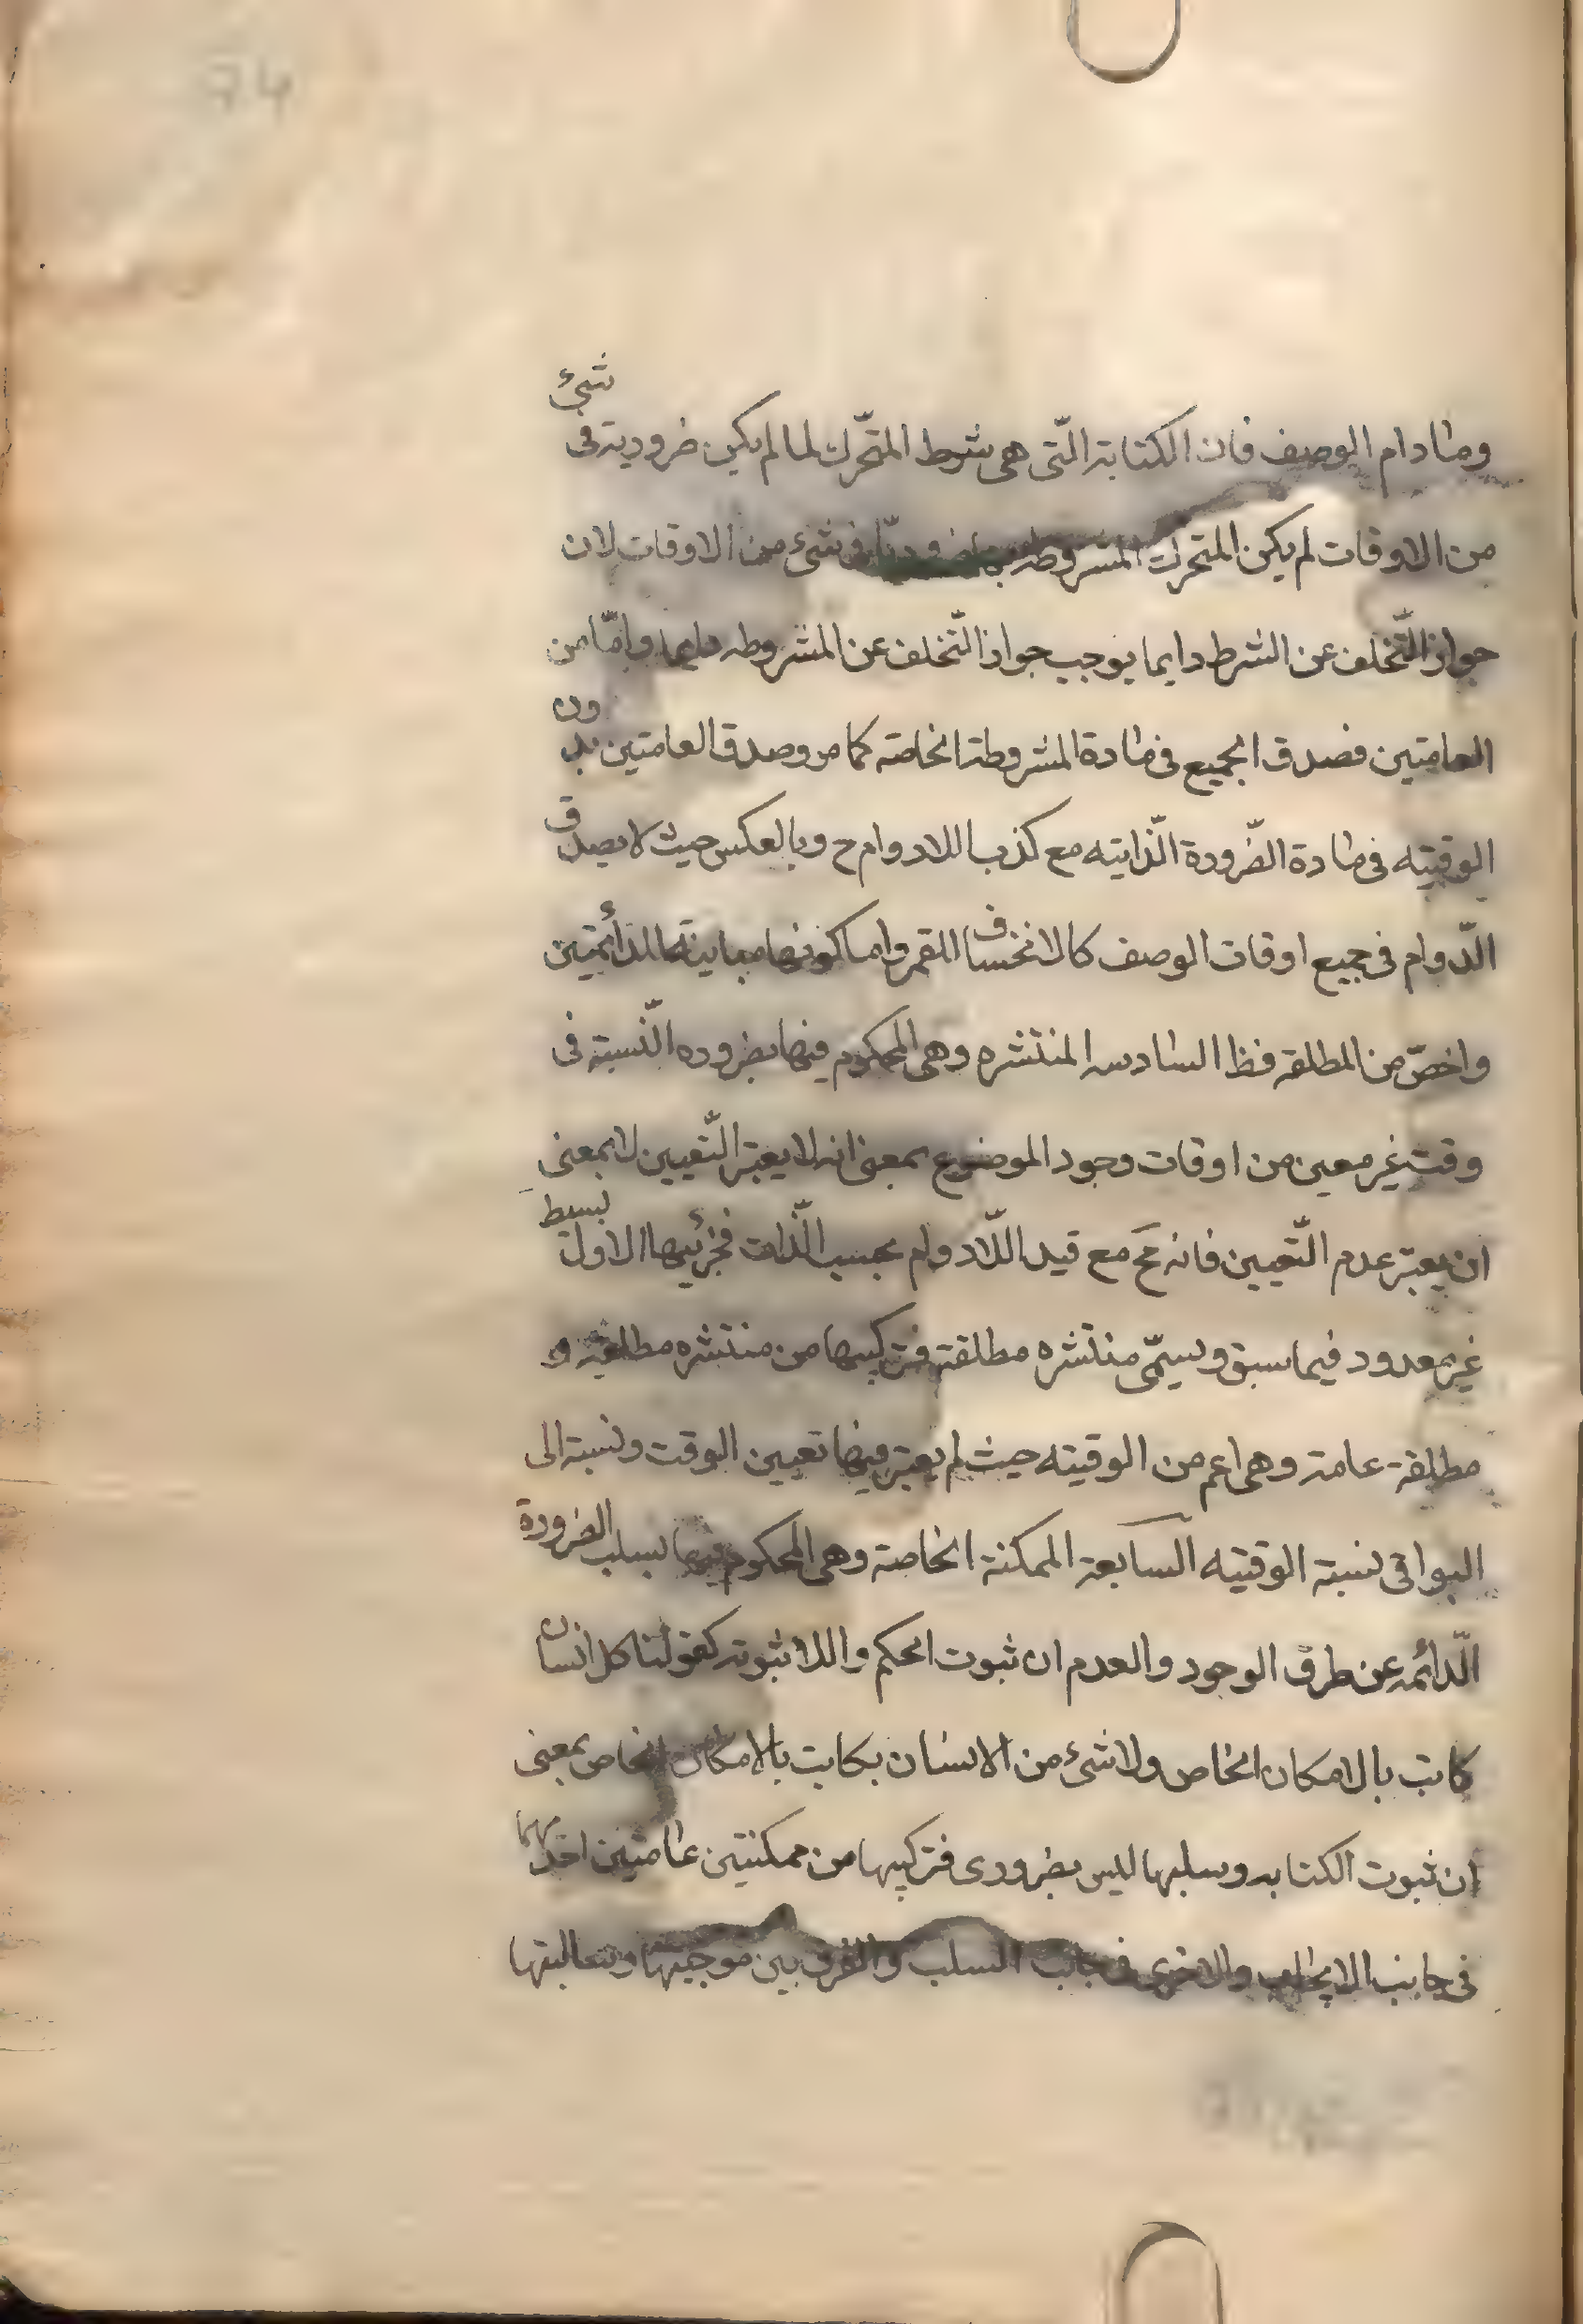 74
وما دام الوصف فان الكتابة الّتى هى شرط المتحّرك لما لم يكن ضرورية فى شئ
من الاوقات لم يكن المتحرك المشروط بها ضروريّا فى شئ من الاوقات لان
جواز التّخلف عن الشرط دايما يوجب جواز التّخلف عن المشروط دايما وامّا من
العامتين فصدق الجميع فى مادة المشروطة الخاصة كما مر وصدق العامتين بدون
الوقتيه فى مادة الضّرورة الذّاتيه مع كذب اللادوام ح وبالعكس حيث لا يصدق
الدّوام فى جميع اوقات الوصف كالانخساف للقمر واما كونها مباينة للدائمتين
واخصّ من المطلقة فظ السادسه المنتشره وهى المحكوم فيها بضروره النّسبة فى
وقت غير معين من اوقات وجود الموضوع بمعنى انه لا يعتبر التّعيين لا بمعنى
ان يعتبر عدم التّعيين فانه مح مع قيد اللّادوام بحسب الذّات فجزئيها الاول بسيط
غير معدود فيما سبق ويسمّى منتشره مطلقة فتركيبها من منتشره مطلقة و
مطلقة عامة وهى اعم من الوقتيه حيث لم يعتبر فيها تعيين الوقت ونسبة الى
البواقى نسبة الوقتيه السابعة الممكنة الخاصة وهى المحكوم فيها بسلب الضرورة
الّدائمه عن طرفى الوجود والعدم ان ثبوت الحكم واللا ثبوته كقولنا كل انسان
كاتب بالامكان الخاص ولا شئ من الانسان بكاتب بالامكان الخاص بمعنى
ان ثبوت الكتابه وسلبها ليس بضرورى فتركيبها من ممكنتين عامتين احديهما
فى جانب الايجاب والاخرى فى جانب السلب والفرق بين موجبتها وسالبتها